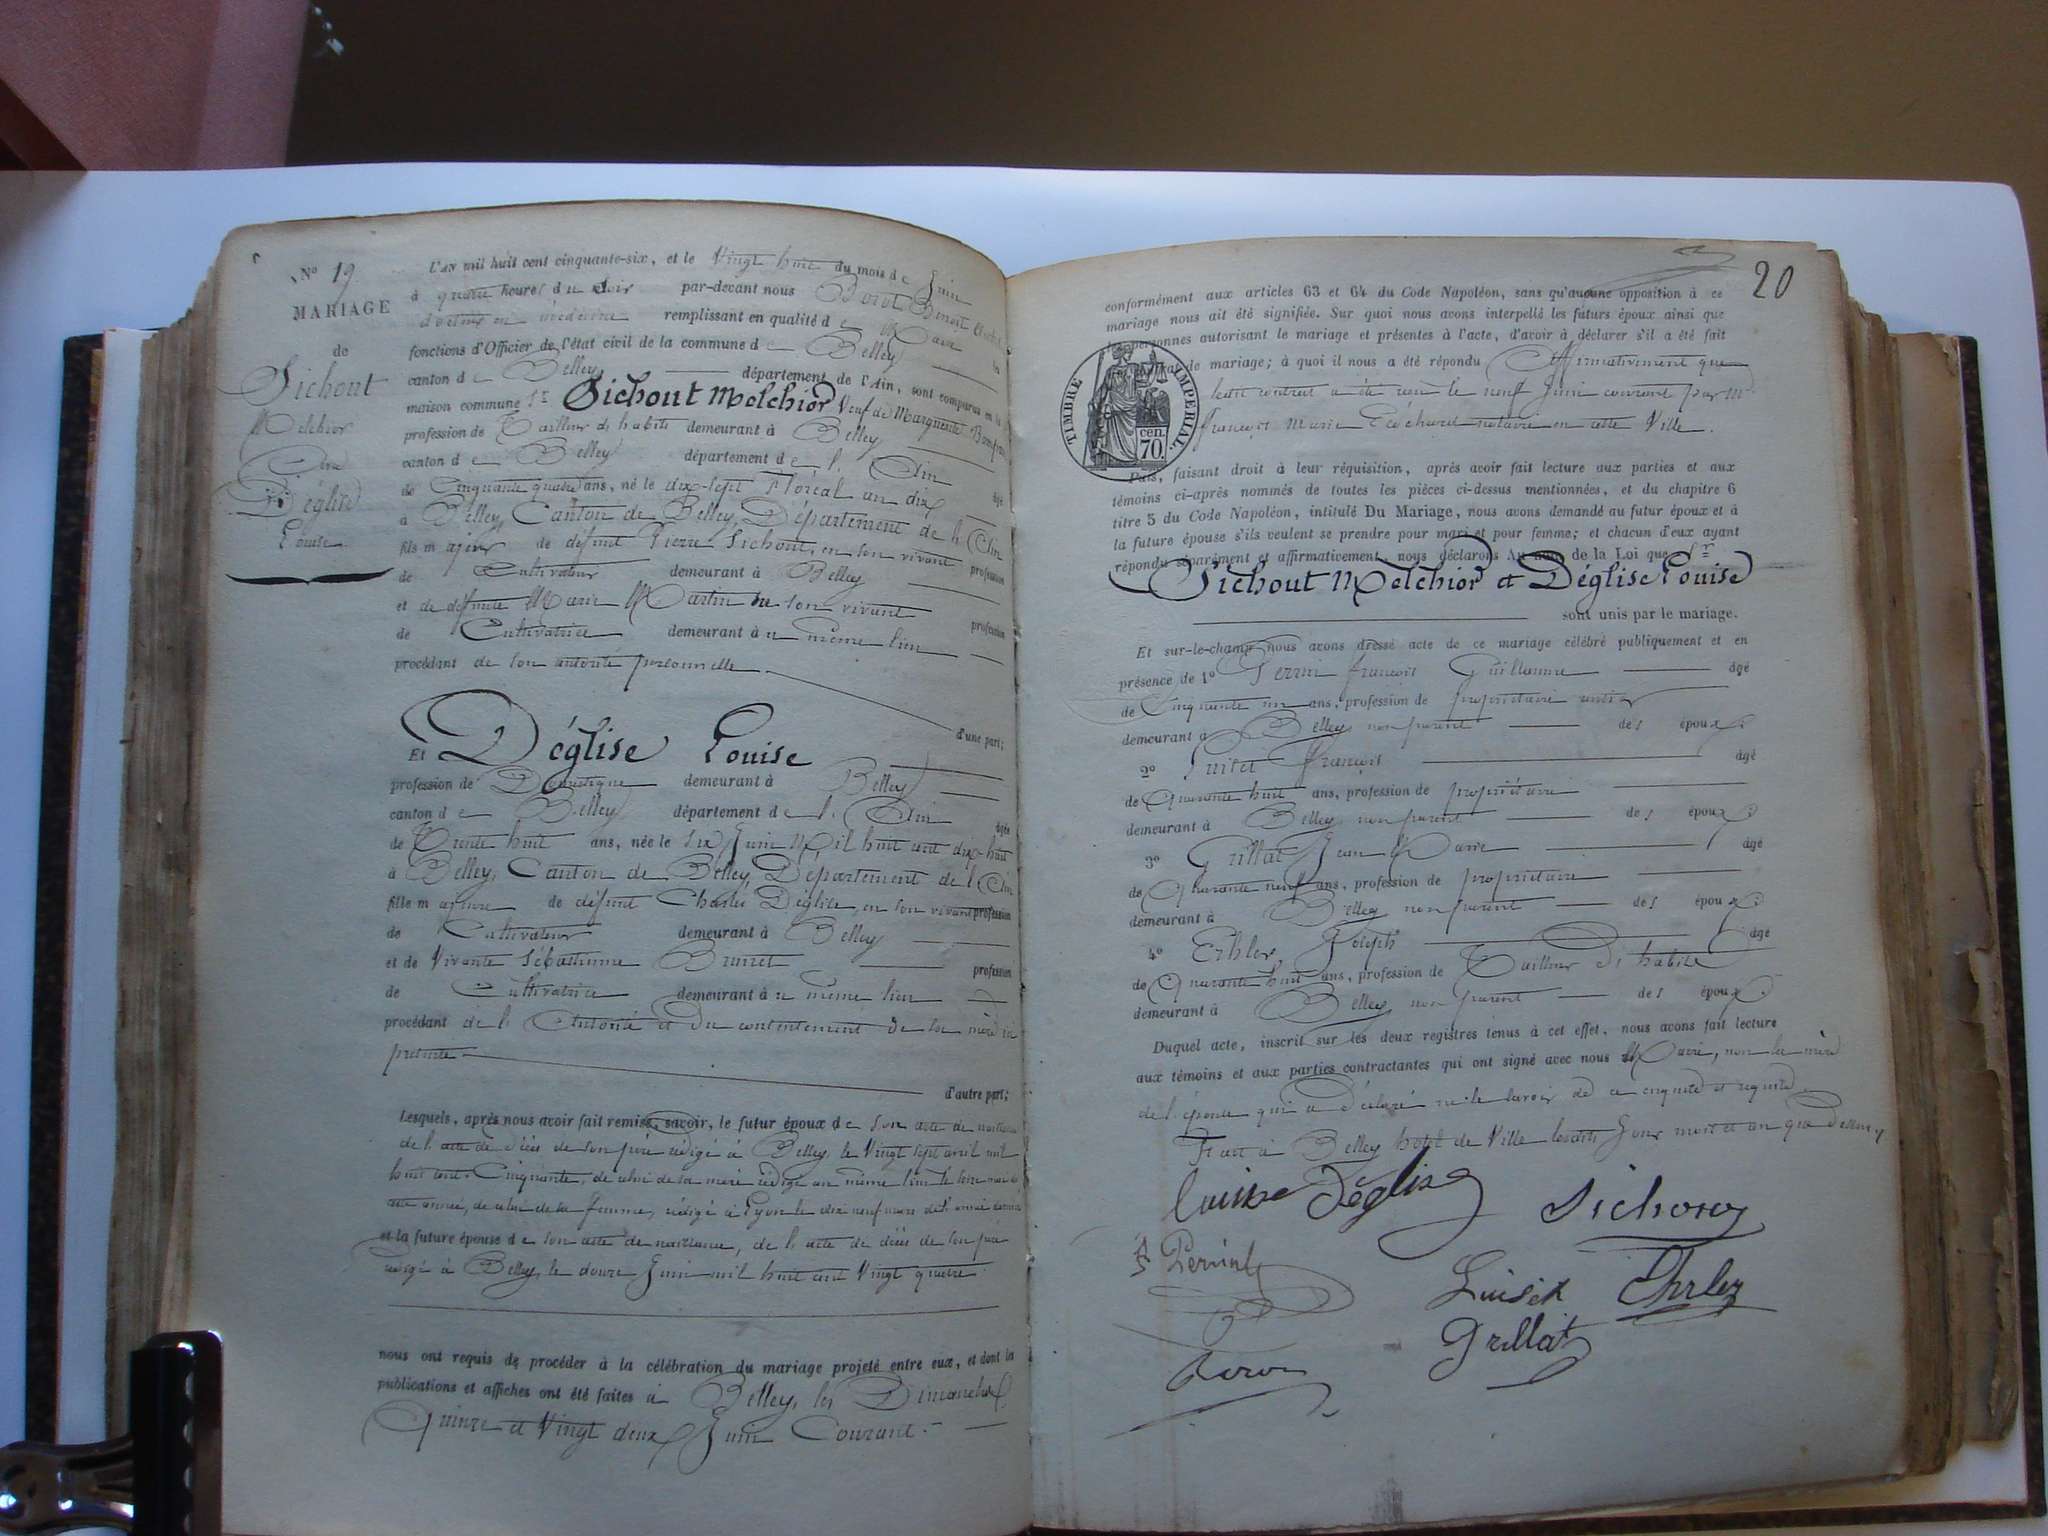 N° 19
MARIAGE
de
Sichout
Melchior
Et
Déglise
Louise
L'AN mil huit cent cinquante-six, et le Vingt huit du mois de Juin
à quatre heures du soir par-devant nous Benoit
docteur en médecine remplissant en qualité de Maire les
fonctions d'Officier de l'état civil de la commune de Belley
canton de Belley département de l'Ain, sont comparus en la
maison commune Sr Sichout Melchior Veuf de Marguerite
profession de Tailleur d'habits demeurant à Belley
canton de Belley département de l'Ain âgé
de Cinquante quatre ans, né le dix-sept Floréal an dix
à Belley, Canton de Belley, Département de l'Ain
fils majeur de défunt Pierre Sichout, en son vivant profession
de Cultivateur demeurant à Belley
et de defunte Marie Martin en son vivant profession
de Cultivatrice demeurant à ce même lieu
procédant de son autorité personnelle
d'une part;
Et Déglise Louise
profession de Domestique demeurant à Belley
canton de Belley département de l'Ain âgée
de Trente huit ans, née le six Juin Mil huit cent dix-huit
à Belley, Canton de Belley, Département de l'Ain
fille majeure de défunt Charles Déglise, en son vivant profession
de Cultivateur demeurant à Belley
et de Vivante Sébastienne Brunet profession
de Cultivatrice demeurant à ce même lieu
procédant de l'Autorité et du consentement de sa mère ici
présente
d'autre part;
Lesquels, après nous avoir fait remise, savoir, le futur époux de son acte de naissance
de l'acte de décès de son père rédigé à Belley, le Vingt sept avril mil
huit cent Cinquante, de celui de sa mère rédigé au même lieu le
année, de celui de sa femme, rédigé à Lyon le dix neuf mars de l'année dernière
et la future épouse de son acte de naissance, de l'acte de décès de son père
rédigé à Belley, le douze Juin mil huit cent Vingt quatre
nous ont requis de procéder à la célébration du mariage projeté entre eux, et dont les
publications et affiches ont été faites à Belley, les Dimanches
Quinze et Vingt deux Juin Courant.
20
conformément aux articles 63 et 64 du Code Napoléon, sans qu'aucune opposition à ce
mariage nous ait été signifiée. Sur quoi nous avons interpellé les futurs époux ainsi que
les personnes autorisant le mariage et présentes à l'acte, d'avoir à déclarer s'il a été fait
contrat de mariage; à quoi il nous a été répondu Affirmativement que
ledit contrat a été reçu le neuf Juin courant par Me
François Marie notaire en cette Ville.
TIMBRE IMPERIAL
cen. 70.
Puis, faisant droit à leur réquisition, après avoir fait lecture aux parties et aux
témoins ci-après nommés de toutes les pièces ci-dessus mentionnées, et du chapitre 6
titre 5 du Code Napoléon, intitulé Du Mariage, nous avons demandé au futur époux et à
la future épouse s'ils veulent se prendre pour mari et pour femme; et chacun d'eux ayant
répondu séparément et affirmativement, nous déclarons Au nom de la Loi que Sr
Sichout Melchior et Déglise Louise
sont unis par le mariage.
Et sur-le-champ nous avons dressé acte de ce mariage célébré publiquement et en
présence de 1° Perrin françois Guillaume âgé
de Cinquante un ans, profession de propriétaire rentier
demeurant à Belley non parent des époux
2° Guiset François âgé
de Quarante huit ans, profession de propriétaire
demeurant à Belley non parent des époux
3° Grillat Jean Marie âgé
de Quarante neuf ans, profession de propriétaire
demeurant à Belley non parent des époux
4° Erhler, Joseph âgé
de Quarante huit ans, profession de Tailleur d'habits
demeurant à Belley non parent des époux
Duquel acte, inscrit sur les deux registres tenus à cet effet, nous avons fait lecture
aux témoins et aux parties contractantes qui ont signé avec nous Maire, non la mère
de l'épouse qui a déclaré ne le savoir de ce enquise et requise
Fait à Belley hôtel de Ville lesdits Jour mois et an que dessus
Louise Déglise
Sichout
Perrin
Guiset
Ehrler
Grillat